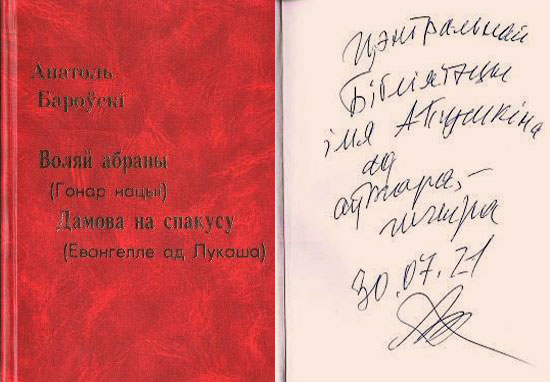 Анатоль
Бароўскі
Воляй абраны
(Гонар нацыі)
Дамова на спакусу
(Евангелле ад Лукаша)
Цэнтральнай
Бібліятэцы
імя А. Пушкіна
ад
аўтара, –
шчыра
30.07.21